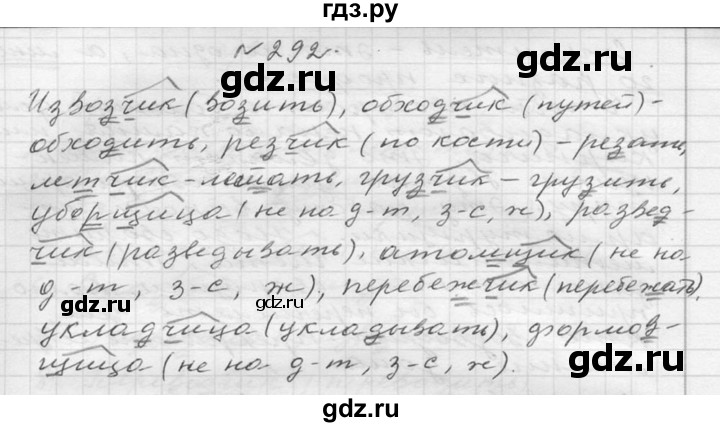 гдз.ру
№292.
Извозчик (возить), обходчик (путей) -
обходить, резчик (по кости) - резать,
летчик - летать, грузчик - грузить,
уборщица (не на д-т, з-с, ж), развед-
чик (разведывать), атомщик (не на
д-т, з-с, ж), перебежчик (перебежать),
укладчица (укладывать), формов-
щица (не на д-т, з-с, ж).
gdz.ru
gdz.ru
gdz.ru
gdz.ru
gdz.ru
gdz.ru
gdz.ru
gdz.ru